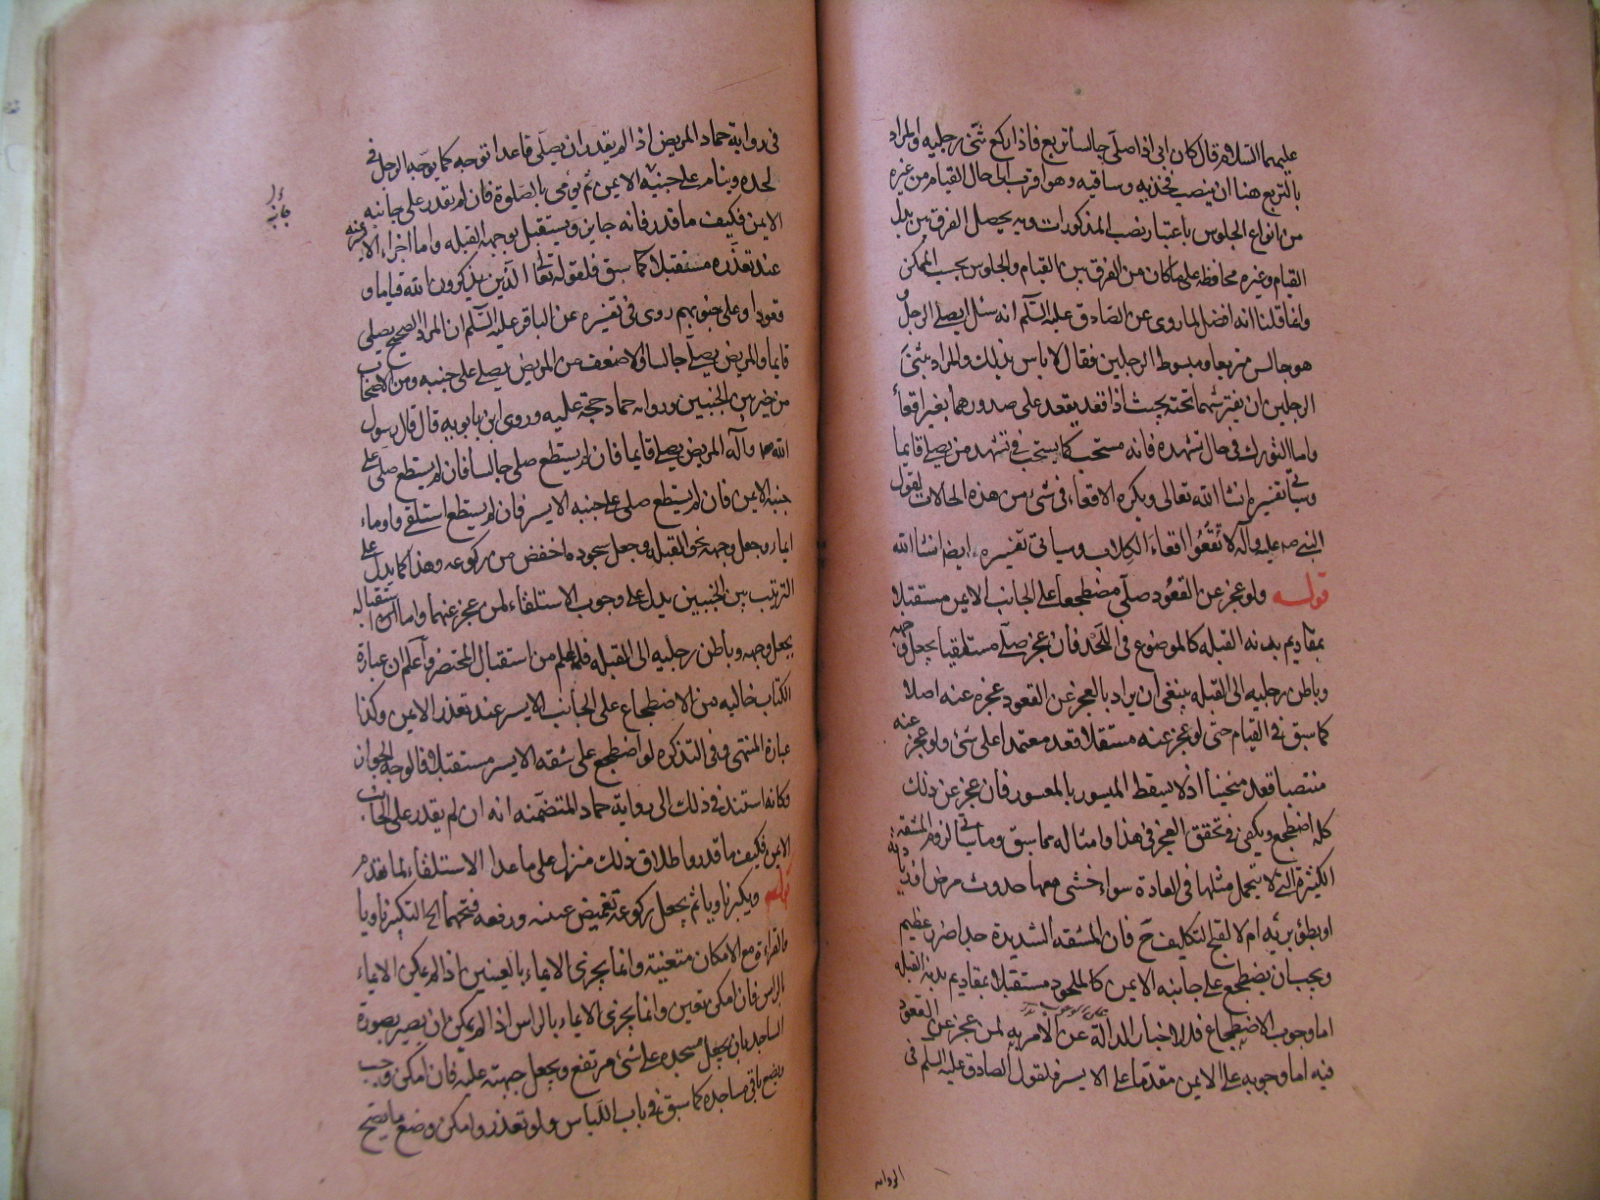 عليهما السلام قال كان ابي اذا صلى جالسا تربع فاذا ركع ثنى رجليه والمراد
بالتربع هنا ان ينصب فخذيه وساقيه وهو اقرب الى حال القيام من غيره
من انواع الجلوس باعتبار نصب المذكورات وبه يحصل الفرق بين بدل
القيام وغيره محافظة على ما كان من الفرق بين القيام والجلوس بحسب الممكن
وانما قلنا انه افضل لما روي عن الصادق عليه السلم انه سئل ايصلي الرجل و
هو جالس متربعا ومبسوط الرجلين فقال لا باس بذلك والمراد بثني
الرجلين ان يفترشهما تحته بحيث اذا قعد يقعد على صدورهما بغير اقعاء
واما التورك في حال تشهده فانه مستحب كما يستحب في تشهد من يصلي قايما
وسياتي تفسيره انشا الله تعالى ويكره الاقعاء في شي من هذه الحالات لقول
النبي صه عليه وآله لا تقعوا اقعاء الكلاب وسياتي تفسيره ايضا انشا الله
قوله ولو عجز عن القعود صلى مضطجعا على الجانب الايمن مستقبلا
بمقاديم بدنه القبله كالموضوع في اللحد فان عجز صلى مستلقيا يجعل وجهه
وباطن رجليه الى القبله ينبغي ان يراد بالعجز عن القعود عجزه عنه اصلا
كما سبق في القيام حتى لو عجز عنه مستقلا قعد معتمدا على شئ ولو عجز عنه
منتصبا قعد منحنيا اذ لا يسقط الميسور بالمعسور فان عجز عن ذلك
كله اضطجع ويكفي في تحقق العجز في هذا وامثاله مما سبق وما ياتي لزوم المشقه
الكثيرة التي لا يتحمل مثلها في العادة سواء خشي معها حدوث مرض او زيادته
او بطؤ برئه ام لا لقبح التكليف ح فان المشقه الشديدة جدا ضرر عظيم
ويجب ان يضطجع على جانبه الايمن كالملحود مستقبلا بمقاديم بدنه القبله
اما وجوب الاضطجاع فللاخبار الدالة عن الامر به لمن عجز عن القعود
فيه اما وجوبه على الايمن مقدما على الايسر فلقول الصادق عليه السلم في
الرواية
في رواية حماد المريض اذا لم يقدر ان يصلي قاعدا توجه كما يوجه الرجل في
لحده وينام على جنبه الايمن ثم يومي بالصلوة فان لم يقدر على جانبه
الايمن فكيف ما قدر فانه جايز ويستقبل بوجهه القبله واما اجزاء الايسر
عند تعذره مستقبلا كما سبق فلقوله تعالى الذين يذكرون الله قياما و
قعودا وعلى جنوبهم روى في تفسيره عن الباقر عليه السلم ان المراد الصحيح يصلي
قايما والمريض يصلي جالسا والاضعف من المريض يصلي على جنبه ومن الاصحاب
من خير بين الجنبين ورواية حماد حجة عليه وروى ابن بابويه قال قال رسول
الله صه وآله المريض يصلي قايما فان لم يستطع صلى جالسا فان لم يستطع صلى على
جنبه الايمن فان لم يستطع صلى على جنبه الايسر فان لم يستطع استلقى واوماء
ايماء وجعل وجهه نحو القبله وجعل سجوده اخفض من ركوعه وهذا كما يدل على
الترتيب بين الجنبين يدل على وجوب الاستلقاء لمن عجز عنهما واما استقباله
يجعل وجهه وباطن رجليه الى القبله فلما علم من استقبال المحتضر وآعلم ان عبارة
الكتاب خاليه من الاضطجاع على الجانب الايسر عند تعذر الايمن وكذا
عبارة المنتهى وفي التذكره لو اضطجع على شقه الايسر مستقبلا فالوجه الجواز
وكانه استند في ذلك الى رواية حماد المتضمنه انه ان لم يقدر على الجانب
الايمن فكيف ما قدر واطلاق ذلك منزل على ما عدا الاستلقاء لما تقدم
قوله ويكبر ناويا ثم يجعل ركوعه تغميض عينيه ورفعه فتحهما الخ التكبير ناويا
والقراءة مع الامكان متعينة وانما يجزي الايماء بالعينين اذا لم يمكن الايماء
بالراس فان امكن تعين وانما يجزي الايماء بالراس اذا لم يمكن ان يصير بصورة
الساجد بان يجعل مسجده على شئ مرتفع ويجعل جبهته عليه فان امكن وجب
ويضع باقي مساجده كما سبق في باب اللباس ولو تعذر وامكن وضع ما يصح